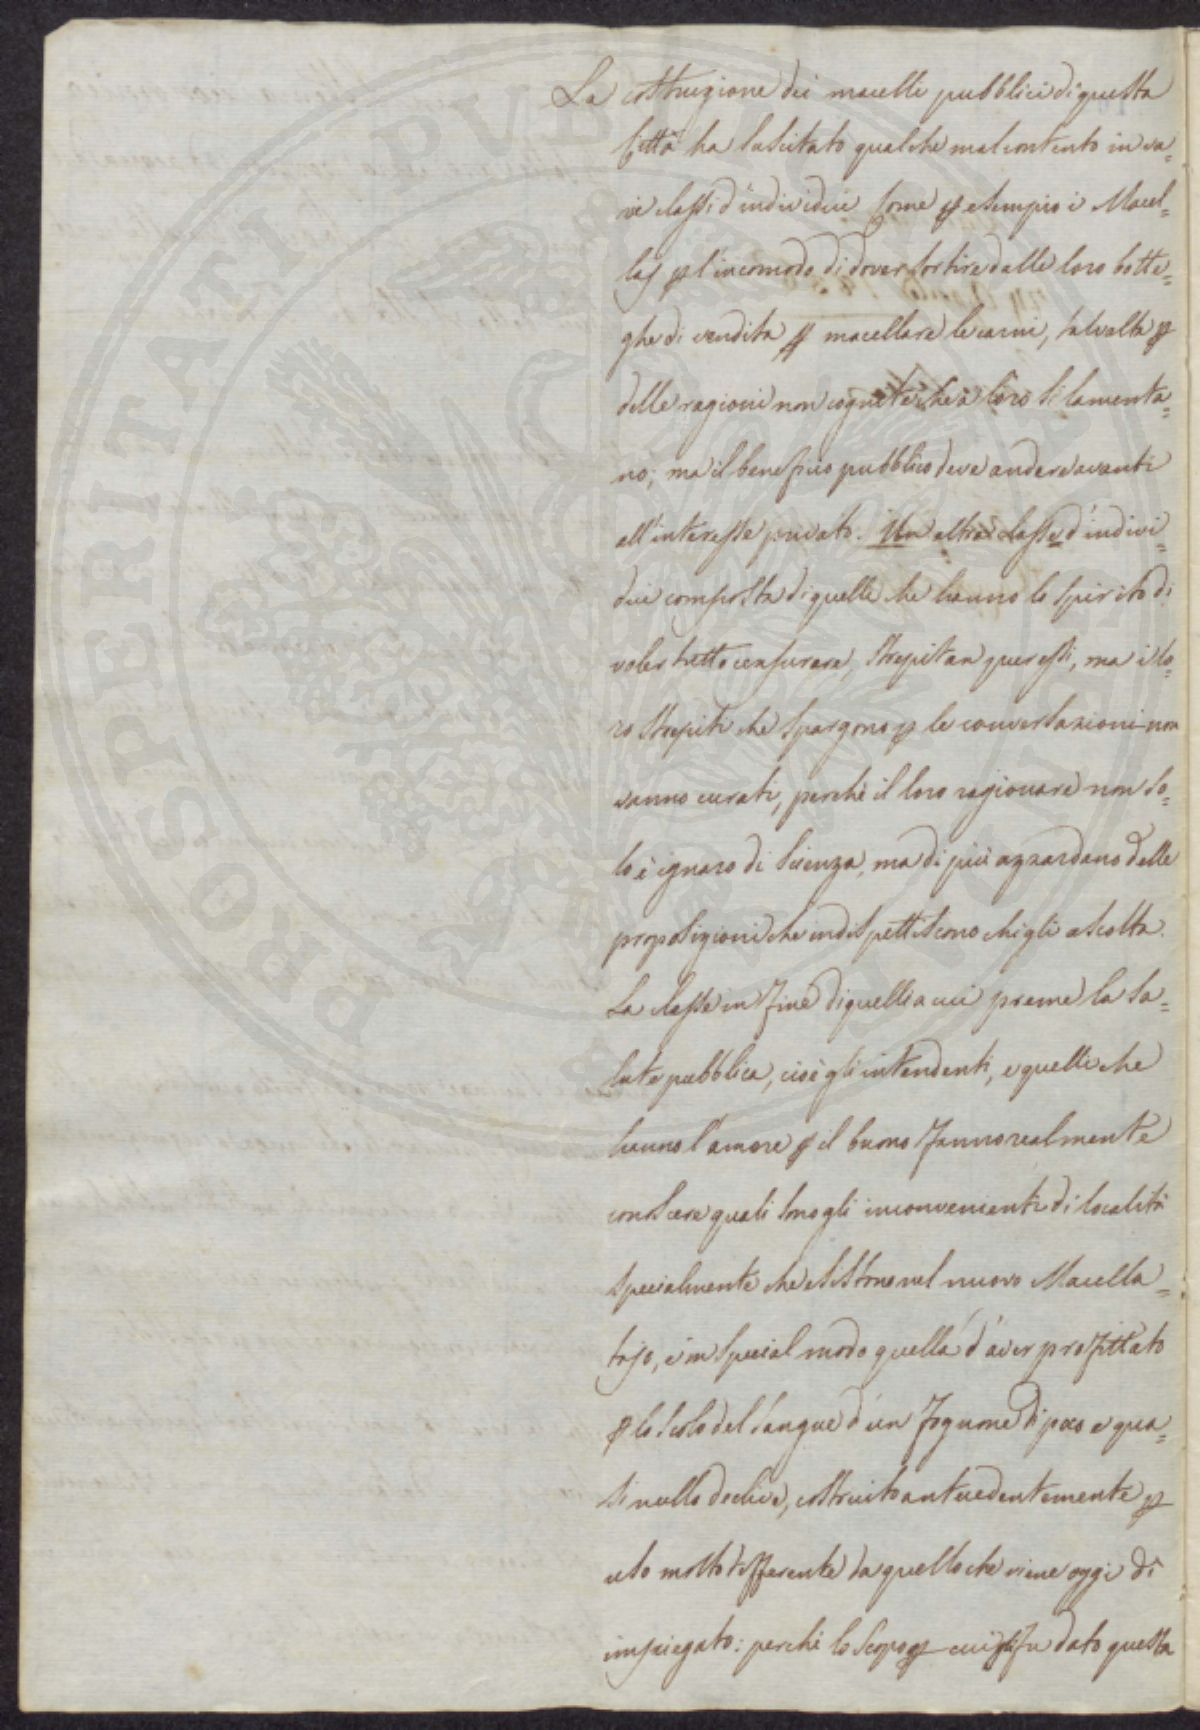 La costruzione dei macelli pubblici di questa
Città ha suscitato qualche malcontento in va=
rie classi d'individui come p esempio i Macel=
laj p l'incomodo di dover sortire dalle loro botte=
ghe di vendita p macellare le carni, talvolta p
delle ragioni non cognite che a loro si lamenta=
no; ma il beneficio pubblico deve andare avanti
all'interesse privato. Un altra classe d'indivi=
dui composta di quelli che hanno lo spirito di
voler tutto censurare, strepitan pur essi, ma i lo=
ro strepiti che spargono p le conversazioni non
vanno curati, perchè il loro ragionare non so=
lo è ignaro di scienza, ma di più azzardano delle
proposizioni che indispettiscono chi gli ascolta.
La classe in fine di quelli a cui preme la sa=
lute pubblica, cioè gli intendenti, e quelli che
hanno l'amore p il buono fanno realmente
conoscere quali sono gli inconvenienti di località
specialmente che esistono nel nuovo Macella=
tojo, e in special modo quella d'aver profittato
p lo scolo del sangue d'un fognone di poco e qua=
si nullo declive, costruito antecedentemente p
uso molto differente da quello che viene oggi di
impiegato: perchè lo scopo p cui fu dato questa
PROSPERITATI PVBLICAE